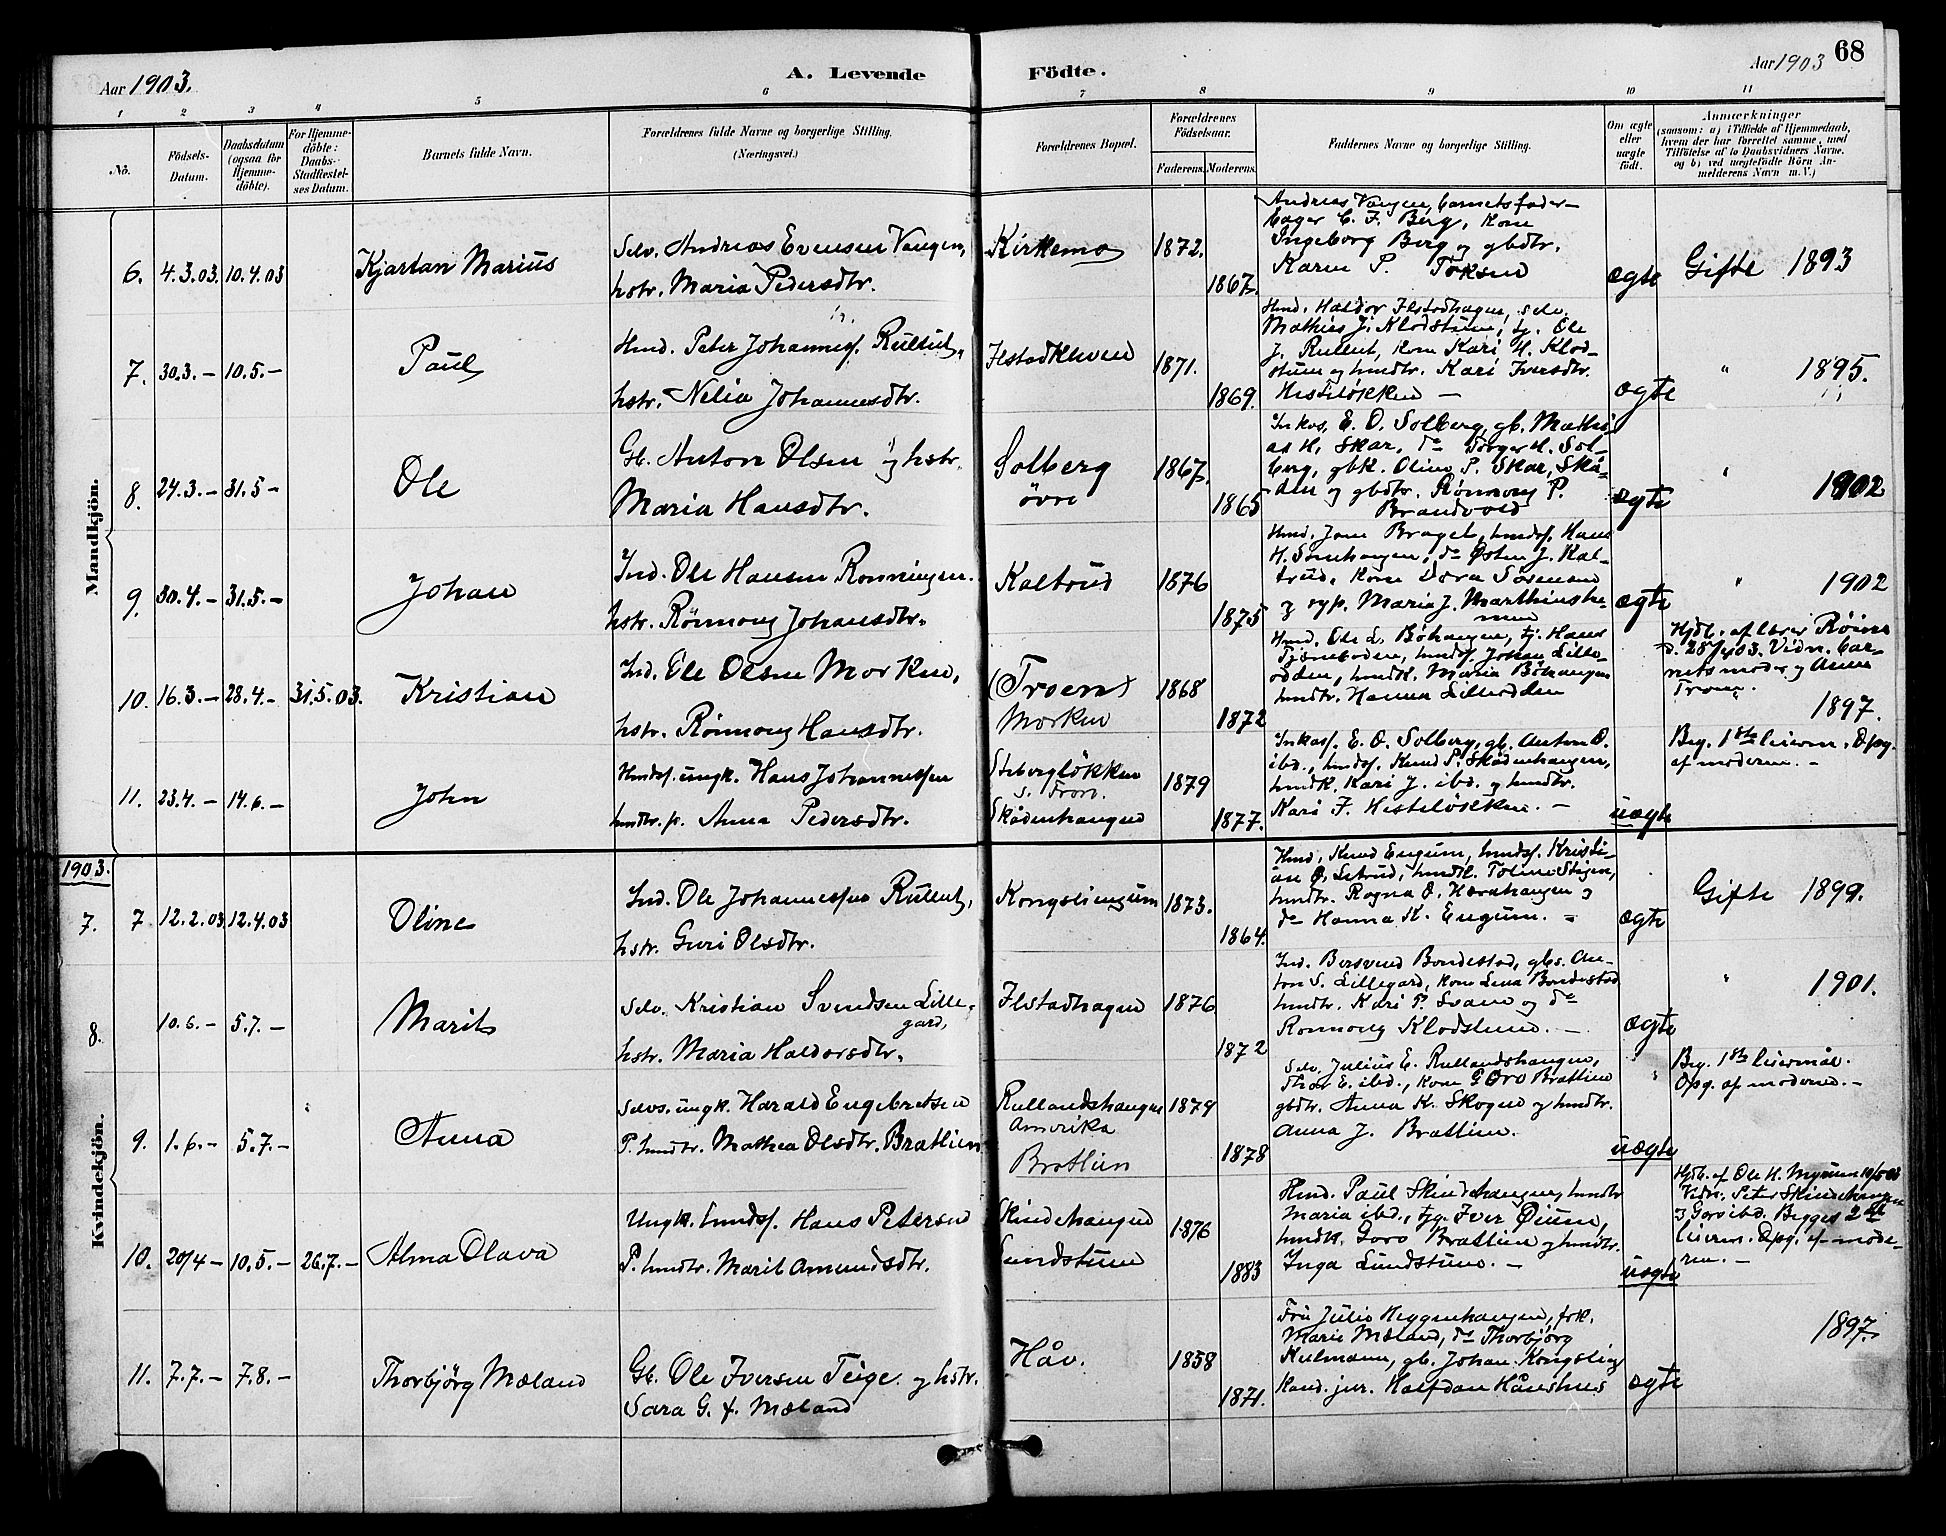 Aar 1903.
A. Levende Födte.
Aar 1903
68
1 2 3 4 5 6 7 8 9 10 11
No.
Födsels-Datum.
Daabsdatum (ogsaa for Hjemme-döbte).
For Hjemme-döbte: Daabs-Stadfæstel-ses Datum.
Barnets fulde Navn.
Forældrenes fulde Navne og borgerlige Stilling.
(Næringsvei.)
Forældrenes Bopæl.
Forældrenes Födselsaar.
Faderens.
Moderens.
Faddernes Navne og borgerlige Stilling.
Om ægte eller uægte födt.
Anmærkninger
(saasom: a) i Tilfælde af Hjemmedaab,
hvem der har forrettet samme, med
Tilföielse af to Daabsvidners Navne,
og b) ved uægtefödte Börn An-
melderens Navn m.V.)
Mandkjön.
6. 4.3.03. 10.4.03 Kjartan Marius
Selv. Andreas Evensen Vangen,
hstr. Maria Pedersdtr.
Kirkemo 1872. 1867.
Andreas Vangen, barnets fader
bager C. F. Berg, kone
Ingeborg Berg og gbdtr.
Karen P. Toksen
ægte Gifte 1893
7. 30.3.– 10.5.– Paul
Hmd. Peter Johanness. Rullut,
hstr. Nelia Johannesdtr.
Ilstadkleven 1871. 1869.
Hmd. Haldor Ilstadhagen, selv.
Mathies J. Klodstuen, tj. Ole
J. Rullut, kone Kari H. Klod-
stuen og hmdtr. Kari Iversdtr.
Hesteløkken –
ægte " 1895.
8. 24.3.– 31.5– Ole
Gb. Anton Olsen og hstr.
Maria Hansdtr.
Solberg
övre
1867. 1865
Inkas. E. O. Solberg, gb. Mathi
as H. Skar, do Torger H. Sol-
berg, gbk. Oline P. Skar, Skå-
den og gbdtr. Rønnong P.
Brandvold
ægte " 1902
9. 30.4.– 31.5.– Johan
Ind. Ole Hansen Ronningen.
hstr. Rønnong Johansdtr.
Kaltrud 1876 1875
Hmd. Jone Braget, hmds. Hans
H. Simehaugen, do Østen J. Kal-
trud, kone Dora Sørensen
og syp. Maria J. Marthinshe-
men
ægte " 1902
10. 16.3.– 28.4.– 31.5.03. Kristian
Ind. Ole Olsen Morken,
hstr. Rønnong Hansdtr.
(Troen)
Morken
1868 1872
Hmd. Ole L. Böhaugen, tj. Hans
Tjöneboden, hmds. Johan Lille-
odden, hmdk. Maria Böhaugen
hmdtr. Hanna Lilleodden
Hjdb. af lærer Röine
d. 28/4 03. Vidn. bar-
nets moder og Anne
Troen.
1897.
11. 23.4.– 14.6.– John
Hmdss. ungk. Hans Johannessen
hmdtr. p. Anna Pedersdtr.
Stebergløkken
s. Fron.
Skådenhaugen
1879 1877.
Inkass. E. O. Solberg, gb. Anton O.
ibd., hmds. Knud P. Skådenhaugen,
hmdk. Kari J. ibd. og hmdtr.
Kari J. Hesteløkken. –
uægte
Beg. 1ste leierm. Opg.
af moderen. –
1903.
Kvindekjön.
7. 7 12.2.03 12.4.03 Oline
Ind. Ole Johannessen Rullut,
hstr. Guri Olsdtr.
Kongslingum 1873. 1864.
Hmd. Knud Engum, hmds. Kristi-
an O. Letrud, hmdk. Toline Stigen,
hmdtr. Ragna O. Hornhaugen og
do Hanna K. Engum. –
ægte Gifte 1899.
8. 10.6.– 5.7.– Marit
Selv. Kristian Svendsen Lille-
gard,
hstr. Maria Haldorsdtr.
Ilstadhagen 1876 1872
Ind. Bersvend Bondestad, gbs. An-
ton S. Lillegard, kone Lina Bondestad
hmdtr. Kari P. Svane og do
Ronnong Klodstuen. –
ægte " 1901.
9. 1.6.– 5.7.– Anna
Selvs. ungk. Harald Engebretsen
P. hmdtr. Mathea Olsdtr. Bratlien
Rullandshaugen
Amerika
Bratlien
1879 1878
Selv. Julius E. Rullandshaugen,
Thor E. ibd., kone Goro Bratlien
gbdtr. Anna K. Skogen og hmdtr.
Anna J. Bratlien.
uægte
Beg. 1ste leiermål.
Opg. af moderen. –
10. 20/4– 10.5.– 26.7.– Alma Olava
Ungk. hmds. Hans Petersen
P. hmdtr. Marit Amundsdtr.
Skindehaugen
Lundstuen
1876 1883
Hmd. Paul Skindehaugen, hmdtr
Maria ibd., tjg. Iver Øium,
hmdk. Goro Bratlien og hmdtr.
Inga Lundstuen. –
uægte
Hjdb. af Ole H. Myrum 10/5 03
Vidn. Peter Skindehaugen
og Goro ibd. Begges 2det
leierm. Opg. af mode-
ren. –
11. 7.7.– 7.8.– Thorbjörg Mæland
Gb. Ole Iversen Teige og hstr.
Sara G. f. Mæland
Håv. 1858 1871.
Fru Julie Heggenhaugen, frk.
Marie Mæland, do Thorbjörg
Kulmann, gb. Johan Kongslie
Kand. jur. Halfdan Hånshus
ægte 1897.